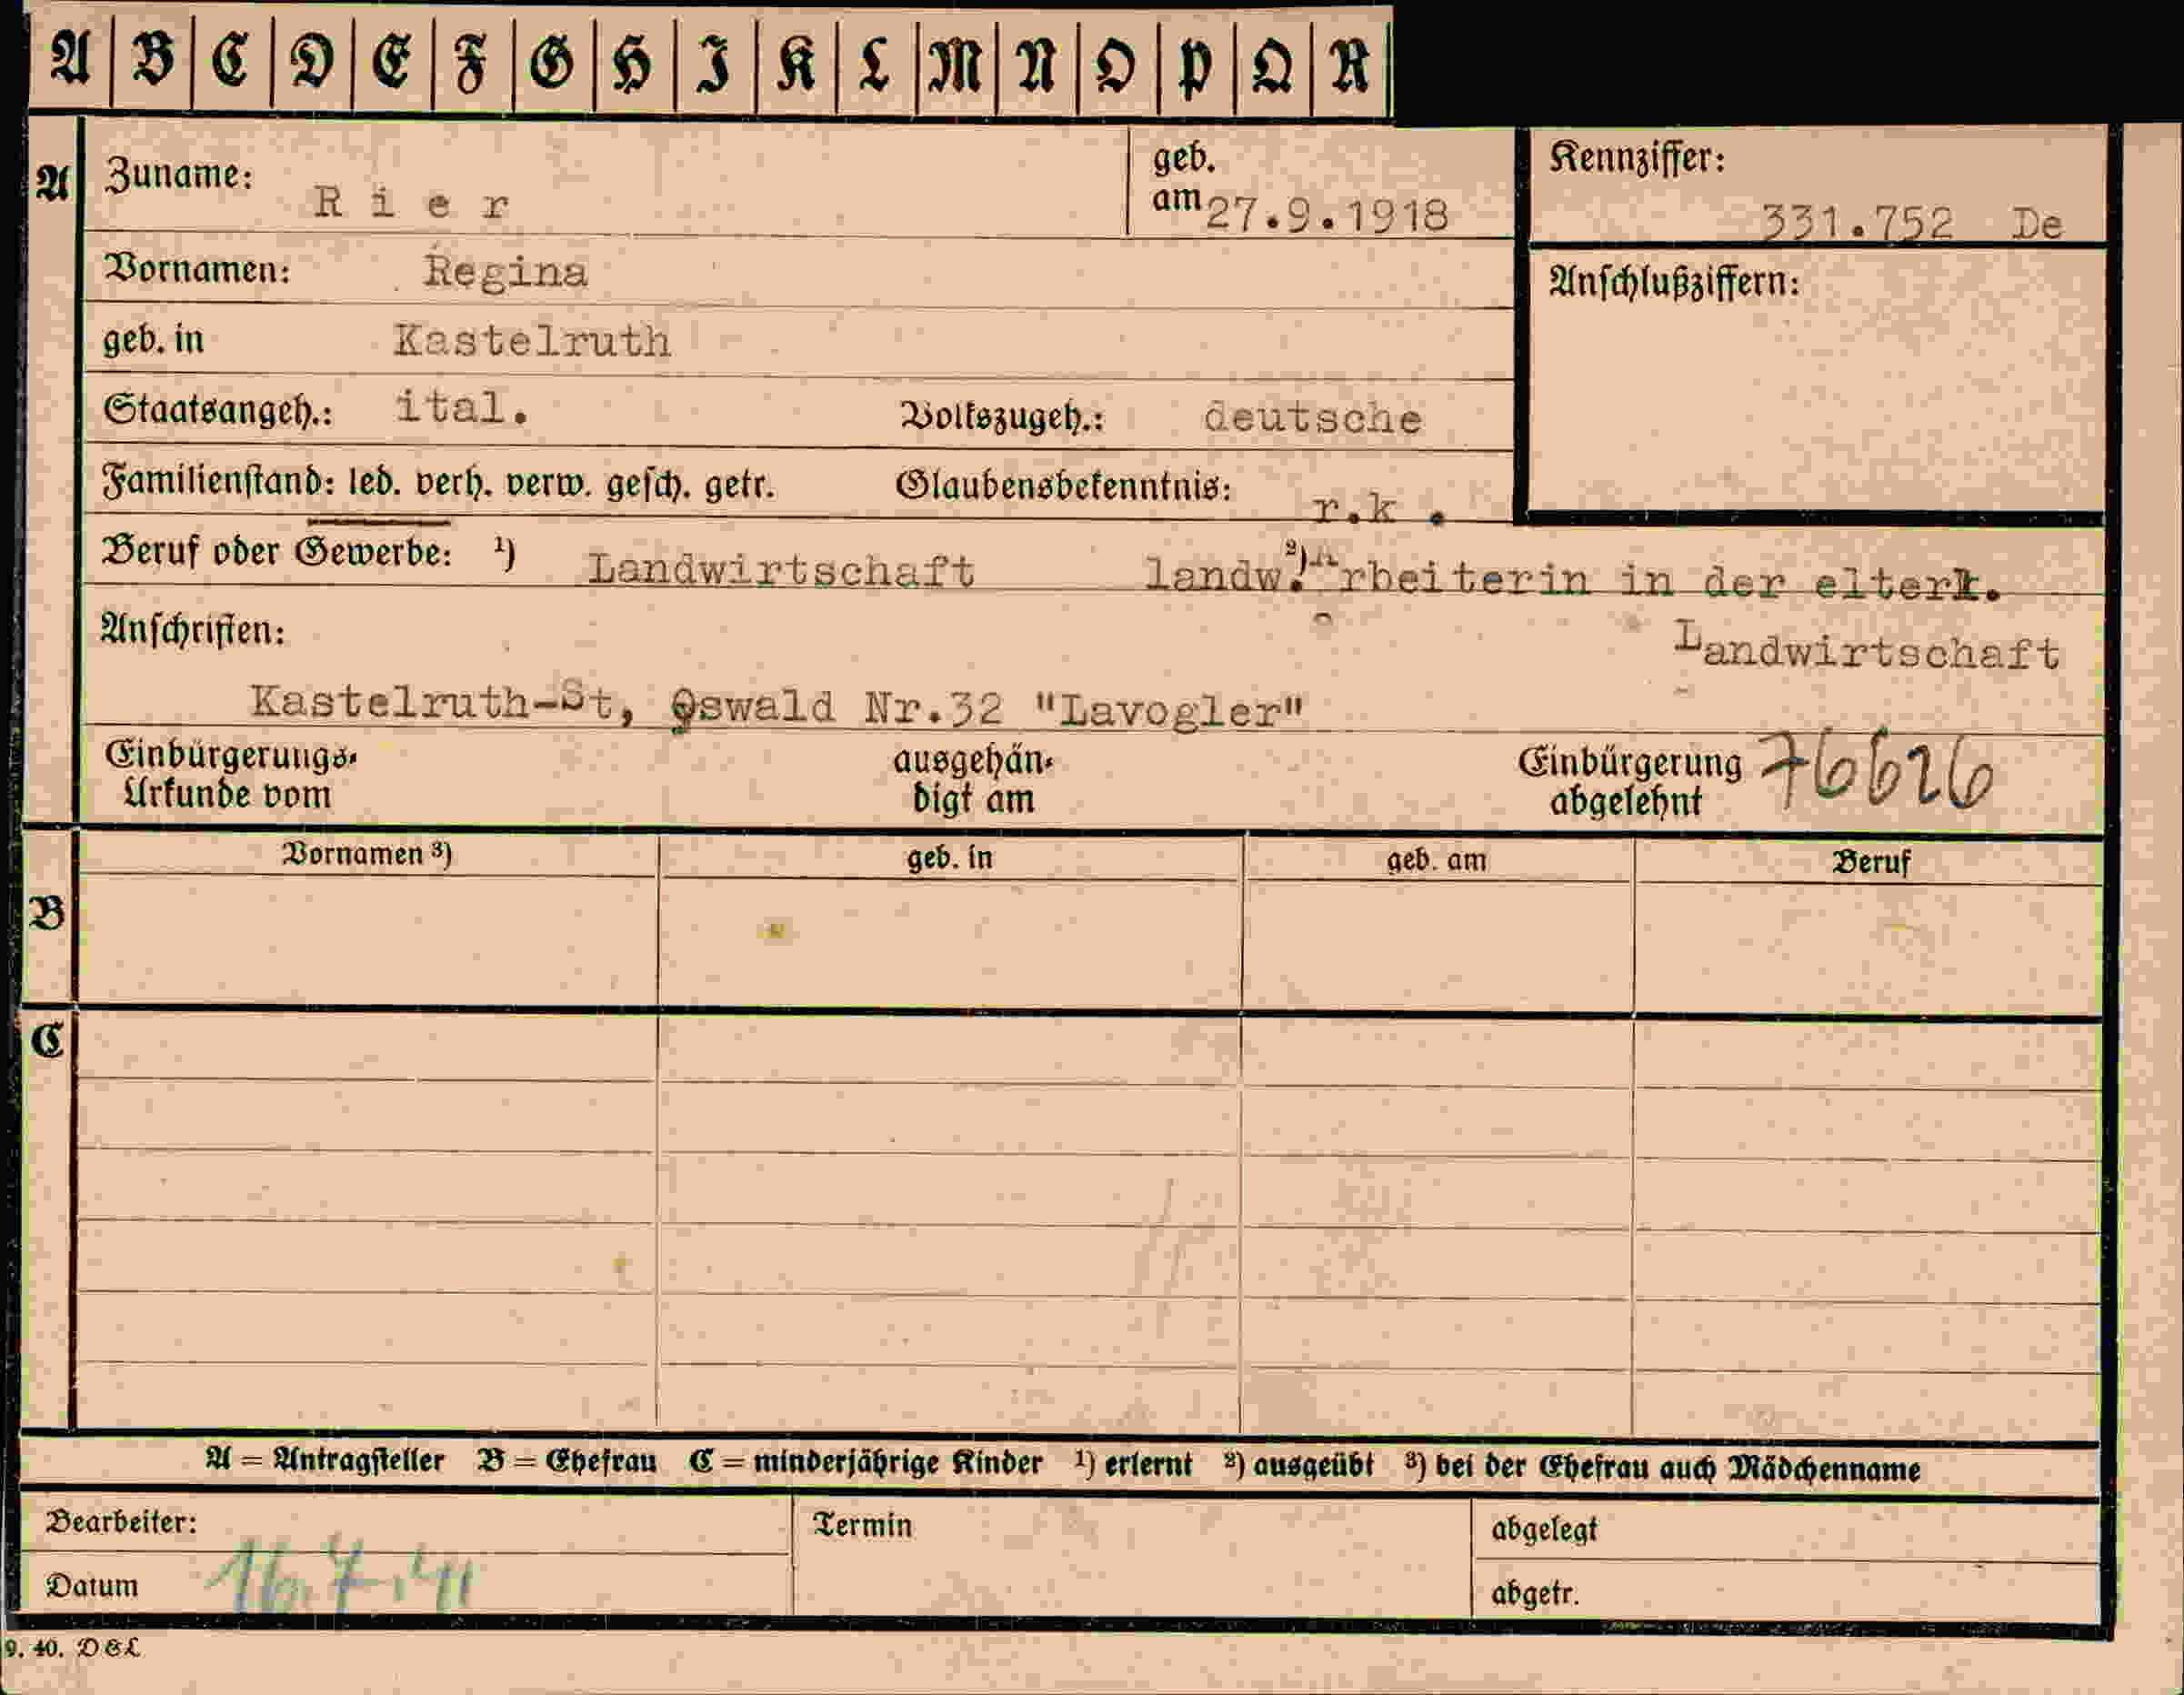 A B C D E F G H I K L M N O P Q R
A Zuname: Rier geb. am 27.9.1918 Kennziffer: 331.752 De
Vornamen: Regina Anschlußziffern:
geb. in Kastelruth
Staatsangeh.: ital. Volkszugeh.: deutsche
Familienstand: led. verh. verw. gesch. getr. Glaubensbekenntnis: r.k .
Beruf oder Gewerbe: ¹) Landwirtschaft ²) landw. Arbeiterin in der elterl.
Anschriften: Landwirtschaft
Kastelruth-St, Oswald Nr.32 "Lavogler"
Einbürgerungs- ausgehän- Einbürgerung 76626
Urkunde vom digt am abgelehnt
Vornamen ³) geb. in geb. am Beruf
B
C
A = Antragsteller B = Ehefrau C = minderjährige Kinder ¹) erlernt ²) ausgeübt ³) bei der Ehefrau auch Mädchenname
Bearbeiter: Termin abgelegt
Datum 16.7.41 abgetr.
9. 40. DGL